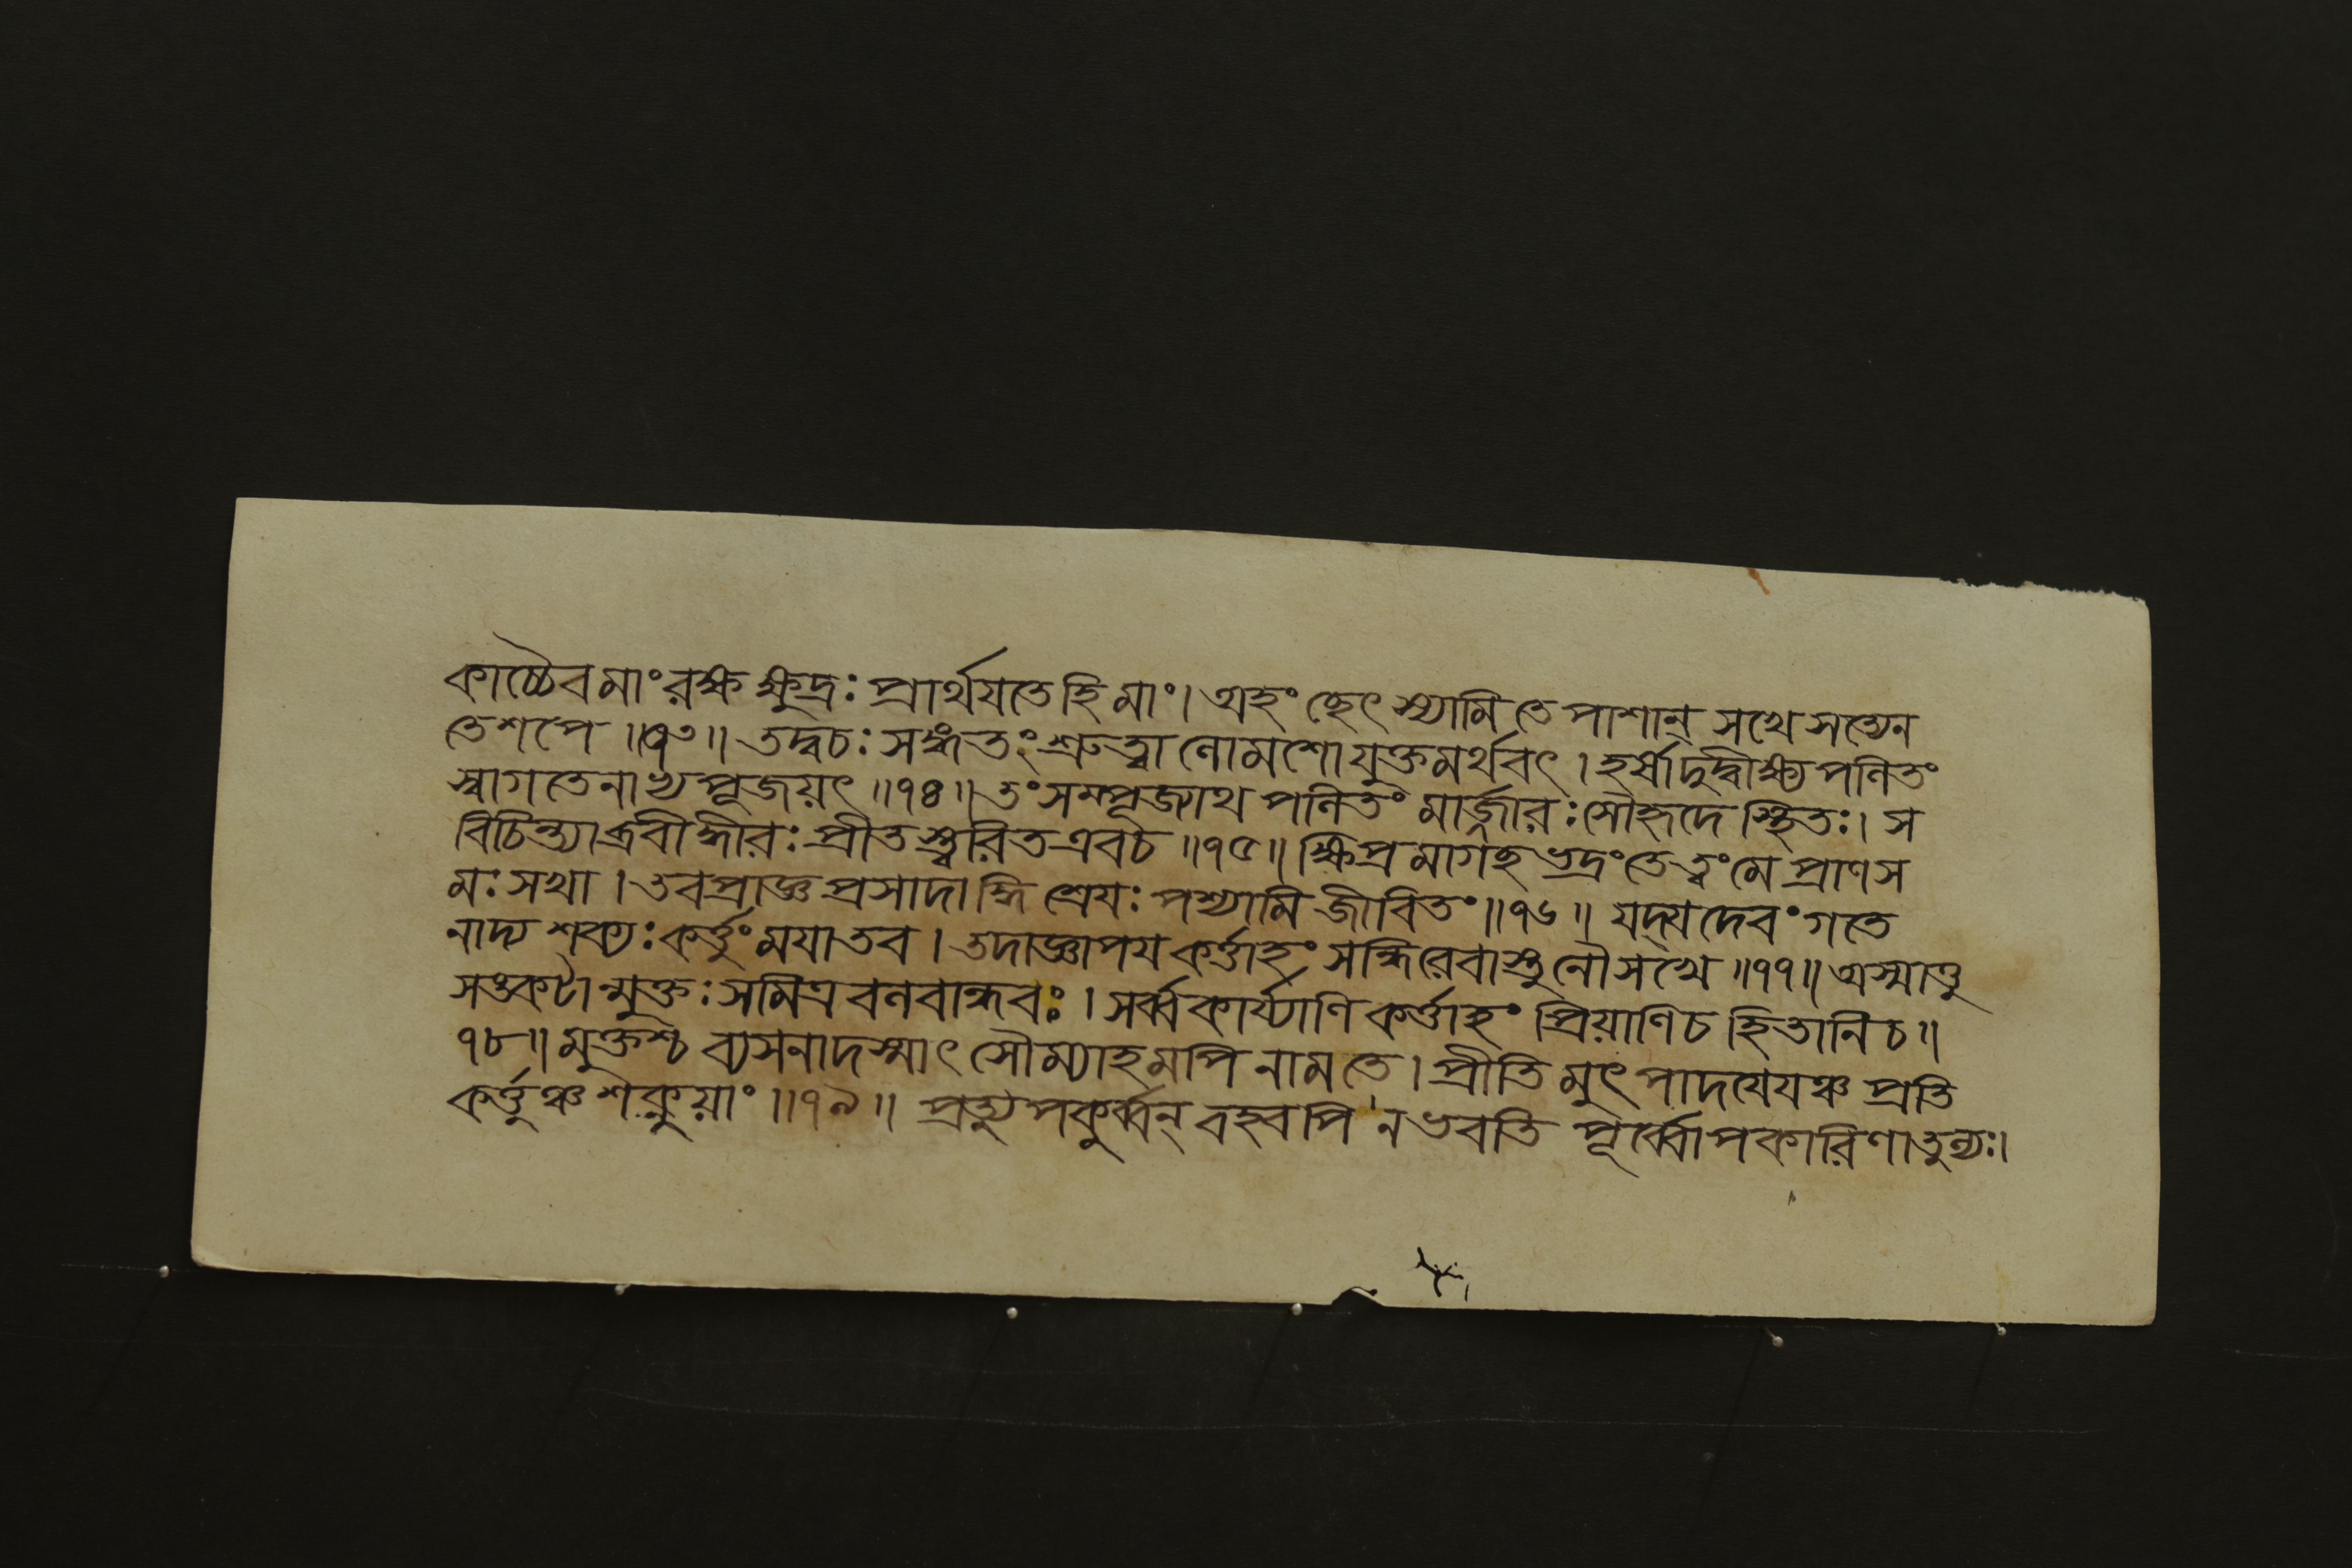 কাচ্চৈবমাংরক্ষক্ষুদ্রঃপ্রার্থযতেহিমাং।অহং ছেৎস্যামি তে পাশান্ সখেসত্যেন
তেশপে॥৭৩॥তদ্বচঃসঙ্গতংশ্রুত্বালোমশোযুক্তমর্থবৎ।হর্ষাদুদ্বীক্ষ্যপলিতং
স্বাগতেনাভ্যপূজয়ৎ॥৭৪॥তংসম্পূজ্যাথ পলিতং মার্জ্জারঃসৌহৃদে স্থিতঃ। স
বিচিন্ত্যাব্রবীদ্ধীরঃপ্রীতস্ত্বরিতএবচ॥৭৫॥ক্ষিপ্রমাগচ্ছভদ্রংতেত্বংমে প্রাণস
মঃসখা।তবপ্রাজ্ঞপ্রসাদাদ্ধি শ্রেযঃ পশ্যামি জীবিতং॥৭৬॥ যদ্যদেবংগতে
নাদ্য শক্যঃকর্ত্তুংমযাতব।তদাজ্ঞাপযকর্ত্তাহং সন্ধিরেবাস্তুনৌসখে॥৭৭॥অস্মাত্তু
সঙ্কটান্মুক্তঃসমিত্রবনবান্ধবঃ।সর্ব্বকার্য্যাণিকর্ত্তাহং প্রিয়াণিচহিতানিচ॥
৭৮॥মুক্তশ্চ ব্যসনাদস্মাৎ সৌম্যাহমপি নামতে।প্রীতিমুৎপাদযেযঞ্চ প্রতি
কর্ত্তুঞ্চশক্নুয়াং॥৭৯॥ প্রত্যুপকুর্ব্বন্ বহ্বপি ন ভবতি পূর্ব্বোপকারিণাতুল্যঃ।